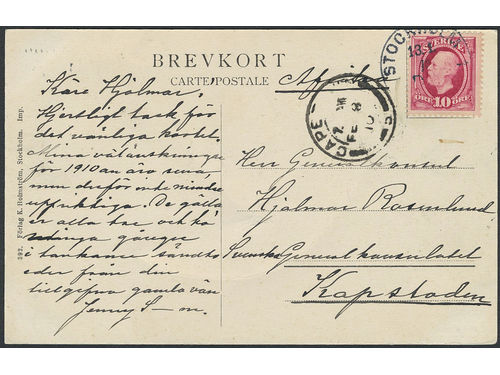 BREVKORT
CARTE POSTALE
Afrika
STOCKHOLM
SVERIGE
ÖRE 10 ÖRE
CAPE
FE 8
10
392. Förlag K. Holmström, Stockholm. Imp.
Käre Hjalmar.
Hjertligt tack för
det vänliga kortet.
Mina välönskningar
för 1910 äro sena,
men derför inte mindre
uppriktiga. De gälla
er alla tre och
många gånger
i tankarne sändts
eder från din
tillgifna gamla vän
Jenny S-m.
Herr Generalkonsul
Hjalmar Rosenlund.
Svenska Generalkonsulatet
Kapstaden